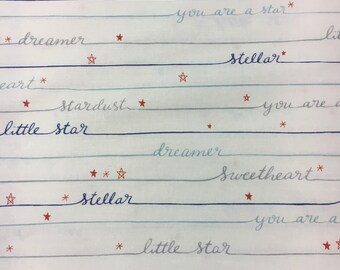 you are a star
dreamer
li
stellar
heart
stardust you are a
little star
dreamer
sweetheart
stellar
you are a
little star